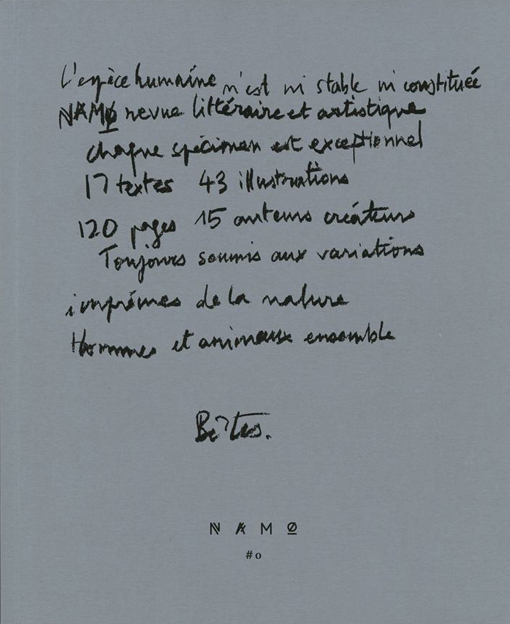 L'espèce humaine n'est ni stable ni constituée
NAMØ revue littéraire et artistique
chaque spécimen est exceptionnel
17 textes 43 illustrations
120 pages 15 auteurs créateurs
Toujours soumis aux variations
imprimées de la nature
Hommes et animaux ensemble
Bêtes.
NAMØ
#0